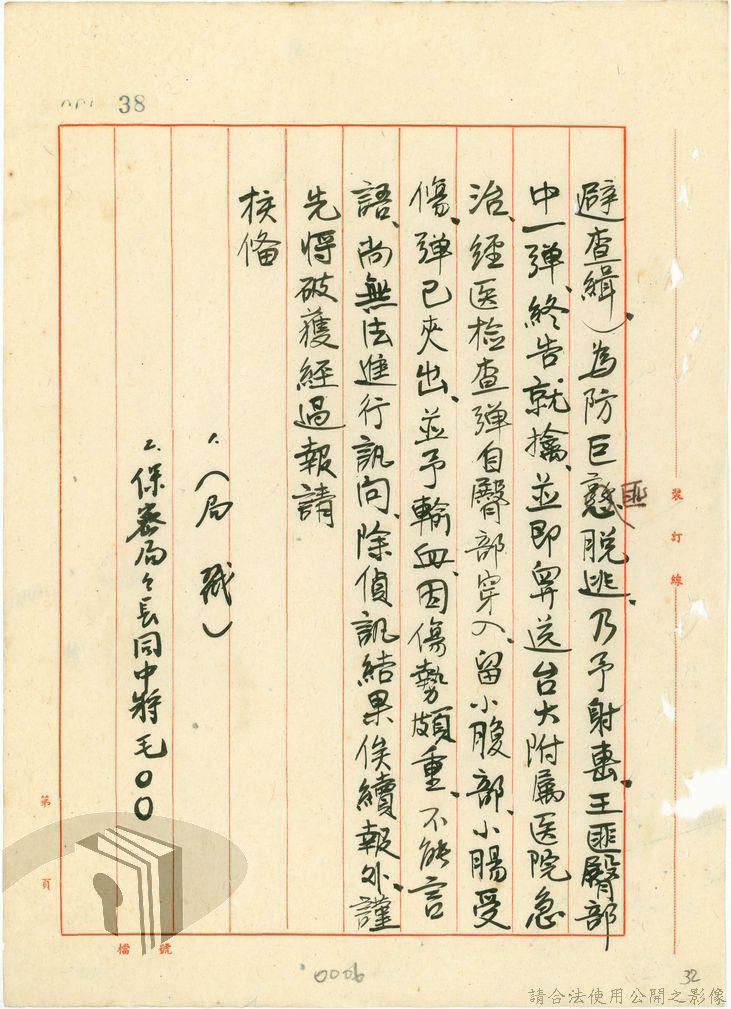 38
避查緝)、為防巨憝脱逃、乃予射擊、王匪臀部
匪
中一弹、終告就擒、並即舁送台大附属医院急
治、經医检查弹自臀部穿入、留小腹部、小腸受
傷、弹已夾出、並予輸血、因傷勢頗重、不能言
語、尚無法進行訊问、除偵訊結果俟續報外、謹
先将破獲經過報請
核俻
1.(局戳)
2.保密局々長同中將毛〇〇
裝訂線
第 頁
檔號
0006
32
請合法使用公開之影像